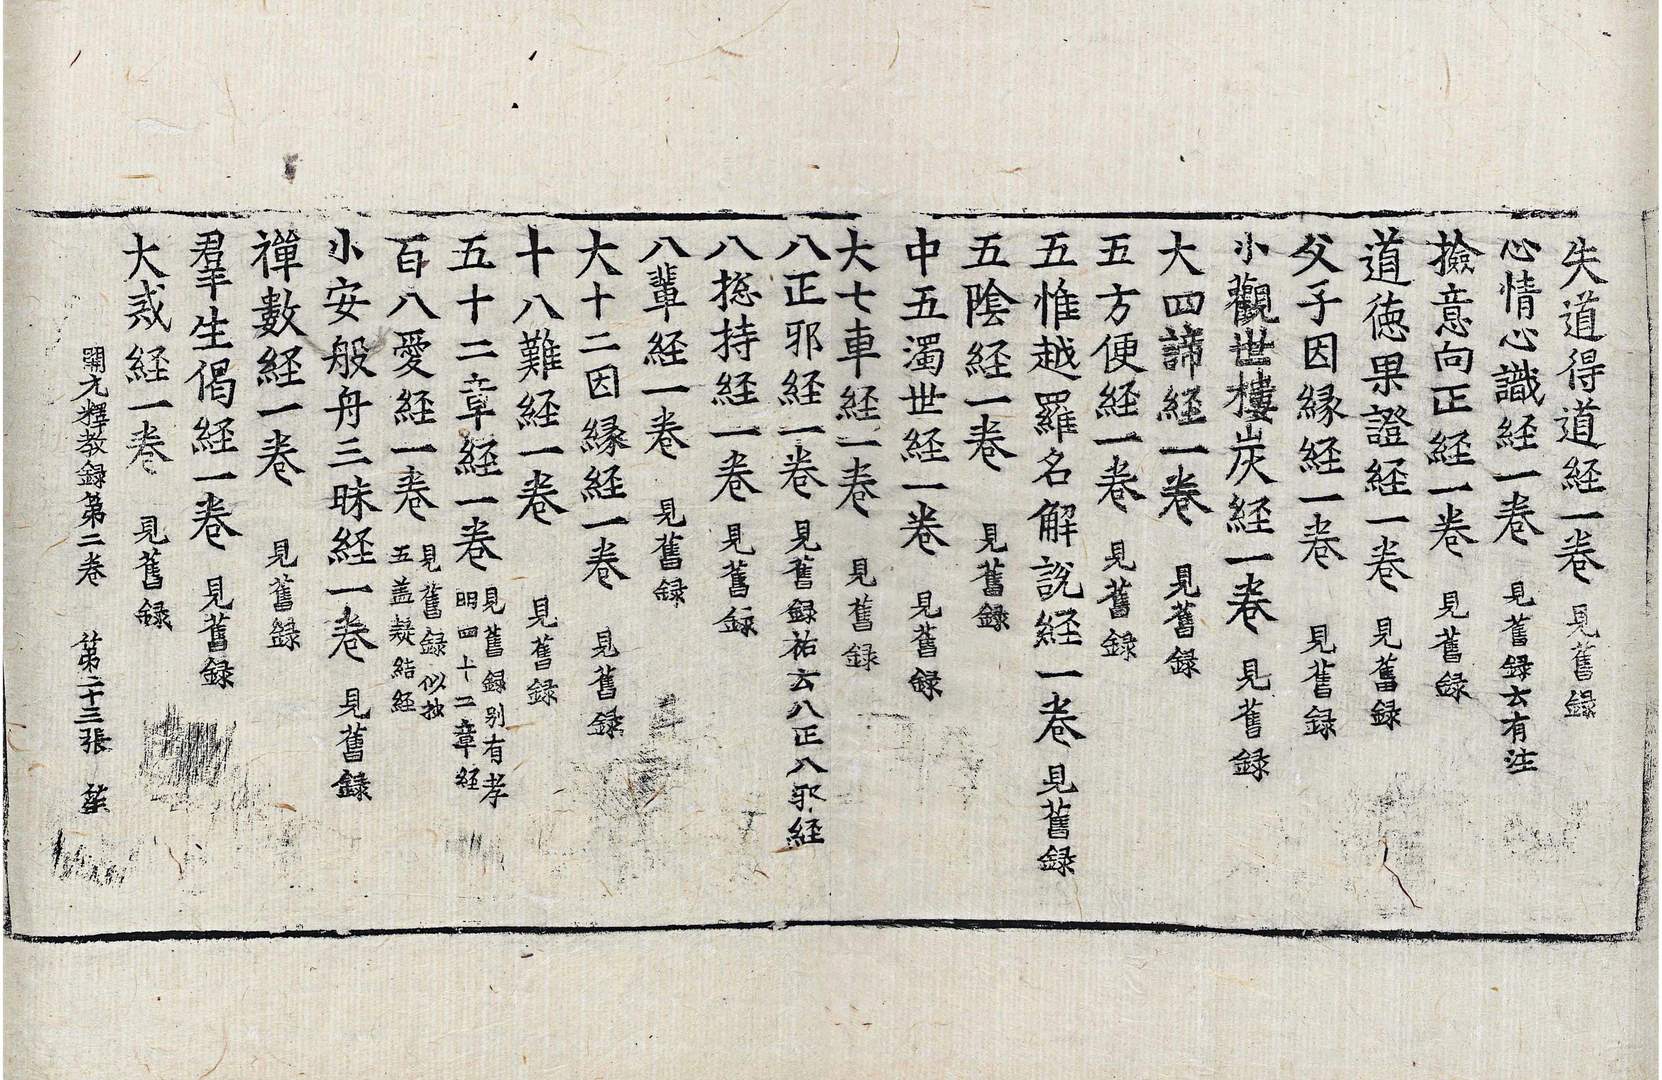 失道得道経一卷 見舊録
心情心識経一卷 見舊録云有注
撿意向正経一卷 見舊録
道徳果證経一卷 見舊録
父子因縁経一卷 見舊録
小觀世樓炭経一卷 見舊録
大四諦経一卷 見舊録
五方便経一卷 見舊録
五惟越羅名解説経一卷 見舊録
五陰経一卷 見舊録
中五濁世経一卷 見舊録
大七車経一卷 見舊録
八正邪経一卷 見舊録祐云八正八邪経
八揔持経一卷 見舊録
八輩経一卷 見舊録
大十二因縁経一卷 見舊録
十八難経一卷 見舊録
五十二章経一卷 見舊録别有孝
明四十二章経
百八愛経一卷 見舊録似抄
五盖疑結経
小安般舟三昧経一卷 見舊録
禪數経一卷 見舊録
羣生偈経一卷 見舊録
大戒経一卷 見舊録
開元釋教録第二卷 第二十三張